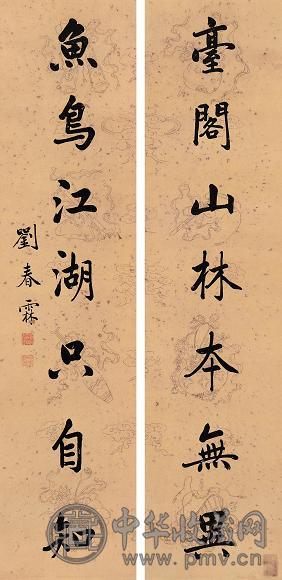 臺閣山林本無異
魚鳥江湖只自知
劉春霖
中华收藏网
www.pmv.cn